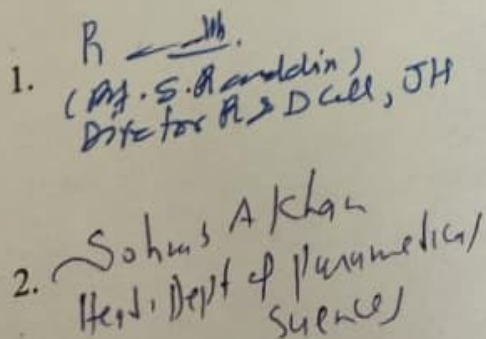 1.
(Prof. S. Raisuddin)
Director R & D Cell, JH
2. Sohrab A Khan
Head, Dept of Paramedical
Sciences